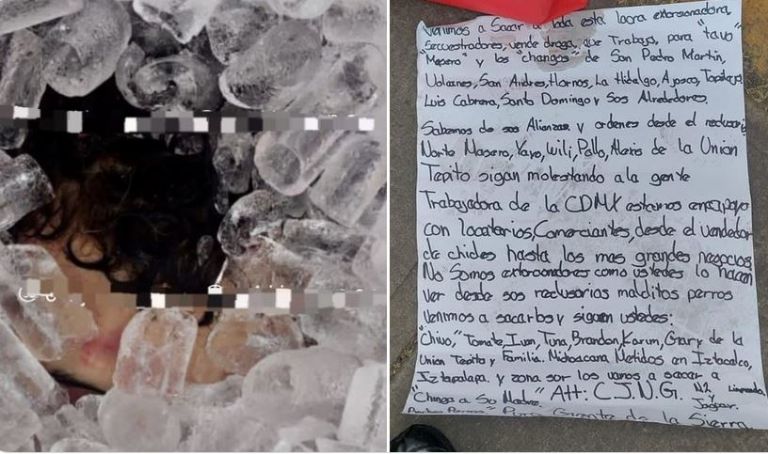 Venimos a Sacar a toda esta lacra extorsionadora,
Secuestradores, vende droga, que Trabaja, para "tavo"
"Masero" y los "changos" de San Pedro Martir,
Volcanes, San Andres, Hornos, La Hidalgo, Ajusco, Topilejo
Luis Cabrera, Santo Domingo y Sos Alrededores.
Sabemos de sos Alianzas y ordenes desde el reclusorio
Norte Masero, Yayo, Wili, Pollo, Alexis de la Union
Tepito sigan molestando a la gente
Trabajadora de la CDMX estamos en apoyo
con locatarios, Comerciantes, desde el vendedor
de chicles hasta los mas grandes negocios
No Somos extorcionadores como ustedes lo hacen
ver desde sos reclusorios malditos perros
venimos a sacarlos y siguen ustedes:
"Chivo," Tomate, Ivan, Tuna, Brandon, Karum, Gary de la
Union Tepito y Familia. Michoacana, Metidos en Iztacalco,
Iztapalapa, y zona sur los vamos a sacar a
"Chinga a So Madre" Att: C.J.N.G. M2
y
Jaguar.
Puro Gente de la Sierra